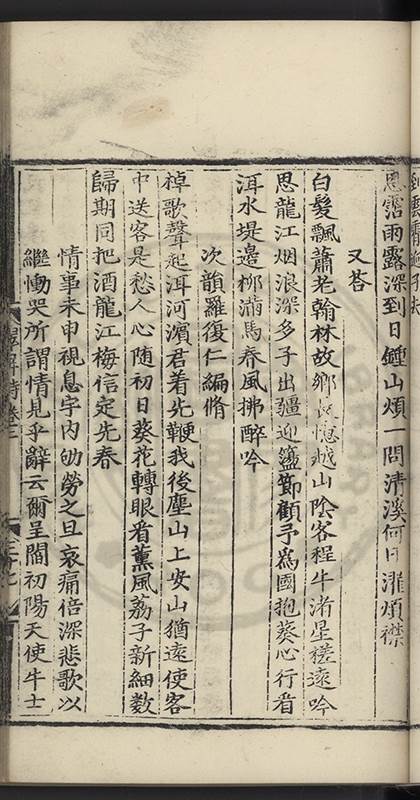 恩霑雨露深到日鍾山煩一問清溪何日濯煩襟
又荅
白髮飄蕭老翰林故鄉長憶越山陰客程牛渚星槎遠吟
思龍江烟浪深多子出疆迎籩節顧予為國抱葵心行看
洱水堤邊柳滿馬春風拂醉吟
次韻羅復仁編脩
棹歌聲起洱河濵君着先鞭我後塵山上安山猶遠使客
中送客是愁人心隨初日葵花轉眼看薰風荔子新細數
歸期同把酒龍江梅信定先春
情事未申視息宇內劬勞之旦哀痛倍深悲歌以
繼慟哭所謂情見乎辭云爾呈閻初陽天使牛士